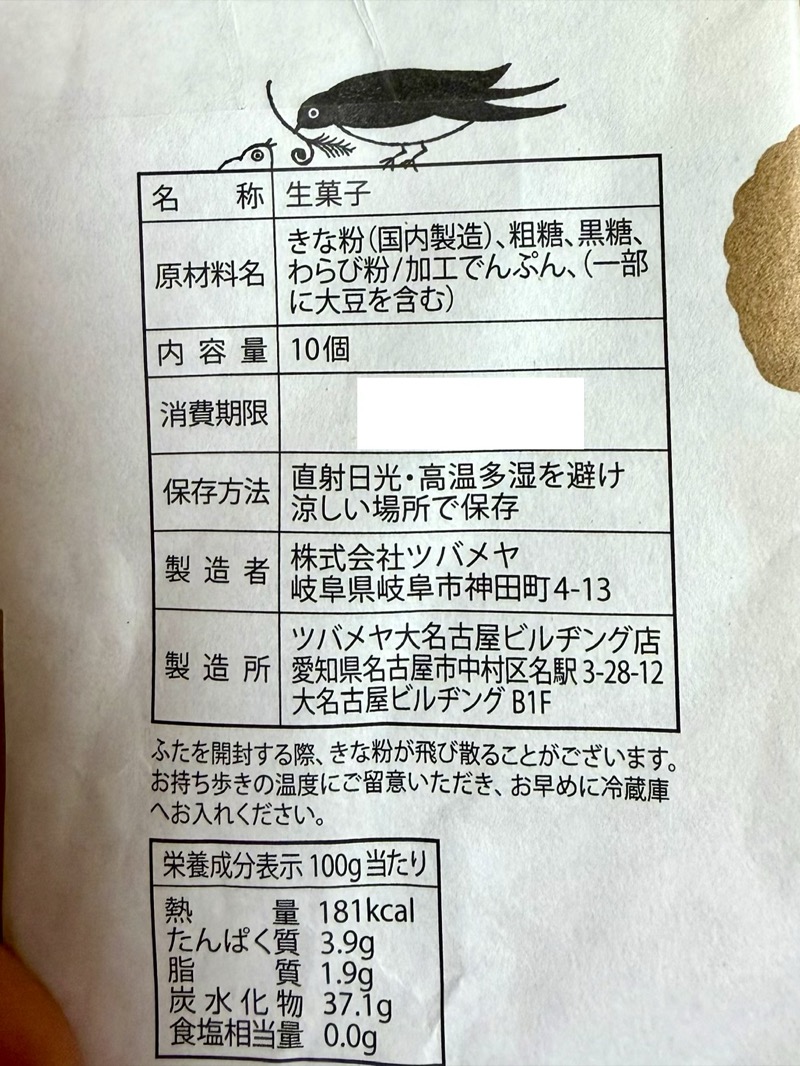 名称 生菓子
原材料名 きな粉(国内製造)、粗糖、黒糖、
わらび粉/加工でんぷん、(一部
に大豆を含む)
内容量 10個
消費期限
保存方法 直射日光・高温多湿を避け
涼しい場所で保存
製造者 株式会社ツバメヤ
岐阜県岐阜市神田町4-13
製造所 ツバメヤ大名古屋ビルヂング店
愛知県名古屋市中村区名駅3-28-12
大名古屋ビルヂング B1F
ふたを開封する際、きな粉が飛び散ることがございます。
お持ち歩きの温度にご留意いただき、お早めに冷蔵庫
へお入れください。
栄養成分表示 100g当たり
熱量 181kcal
たんぱく質 3.9g
脂質 1.9g
炭水化物 37.1g
食塩相当量 0.0g